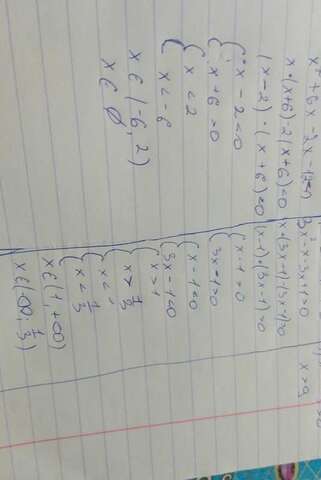 x² + 6x - 2x - 12=0
x·(x+6)-2(x+6)=0
(x-2)·(x+6)=0
{ x-2=0
{ x+6=0
{ x<2
{ x<-6
x∈(-6,2)
x∈∅
3x²-x-3x+1=0
x·(3x-1)-(3x-1)=0
(x-1)·(3x-1)=0
{ x-1=0
{ 3x-1=0
{ x-1=0
{ 3x-1=0
{ x>1
{ x>1/3
{ x<1
{ x<1/3
x∈(1,+∞)
x∈(-∞;1/3)